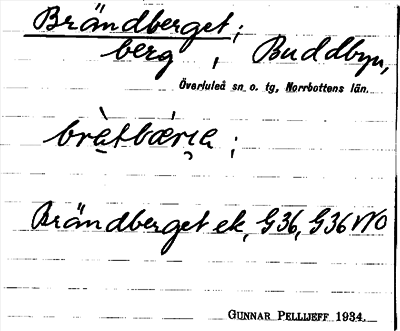 Brändberget;
berg, Buddbyn,
Överluleå sn o. tg, Norrbottens län.
Brändberget ek, G36, G36 NO
GUNNAR PELLIJEFF 1934.